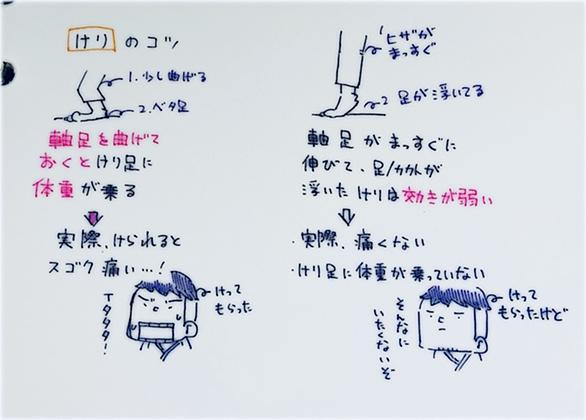 けり のコツ
1.少し曲げる
2.ベタ足
軸足を曲げて
おくとけり足に
体重が乗る
実際、けられると
スゴク痛い…!
けって
もらった
イタタタ!
1 ヒザが
まっすぐ
2 足が浮いてる
軸足がまっすぐに
伸びて、足/カカトが
浮いたけりは効きが弱い
・実際、痛くない
・けり足に体重が乗っていない
けって
もらったけど
そんなに
いたくないぞ